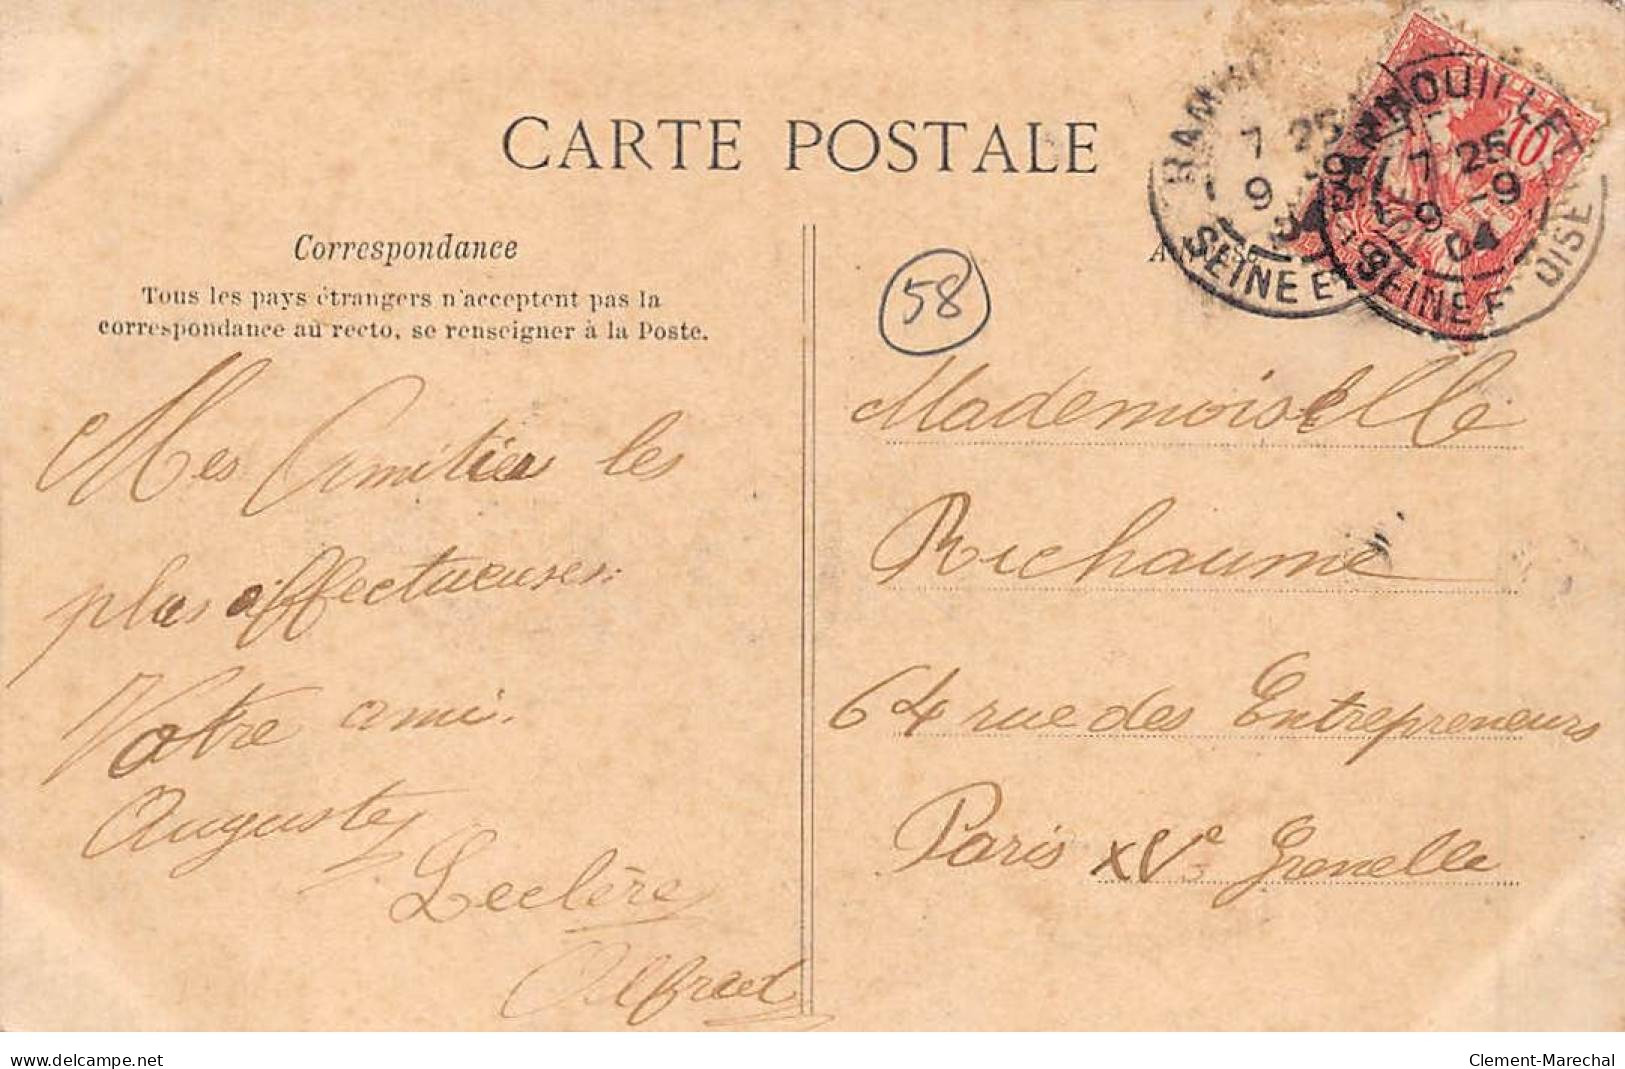 CARTE POSTALE
Correspondance
Tous les pays étrangers n'acceptent pas la
correspondance au recto, se renseigner à la Poste.
Mes Amitiés les
plus affectueuses.
Votre ami.
Auguste
Leclère
Alfred
58
RAMBOUILLET
7 25
9 -9
04
SEINE ET OISE
10
Mademoiselle
Richaume
64 rue des Entrepreneurs
Paris XVe Grenelle
www.delcampe.net
Clement-Marechal